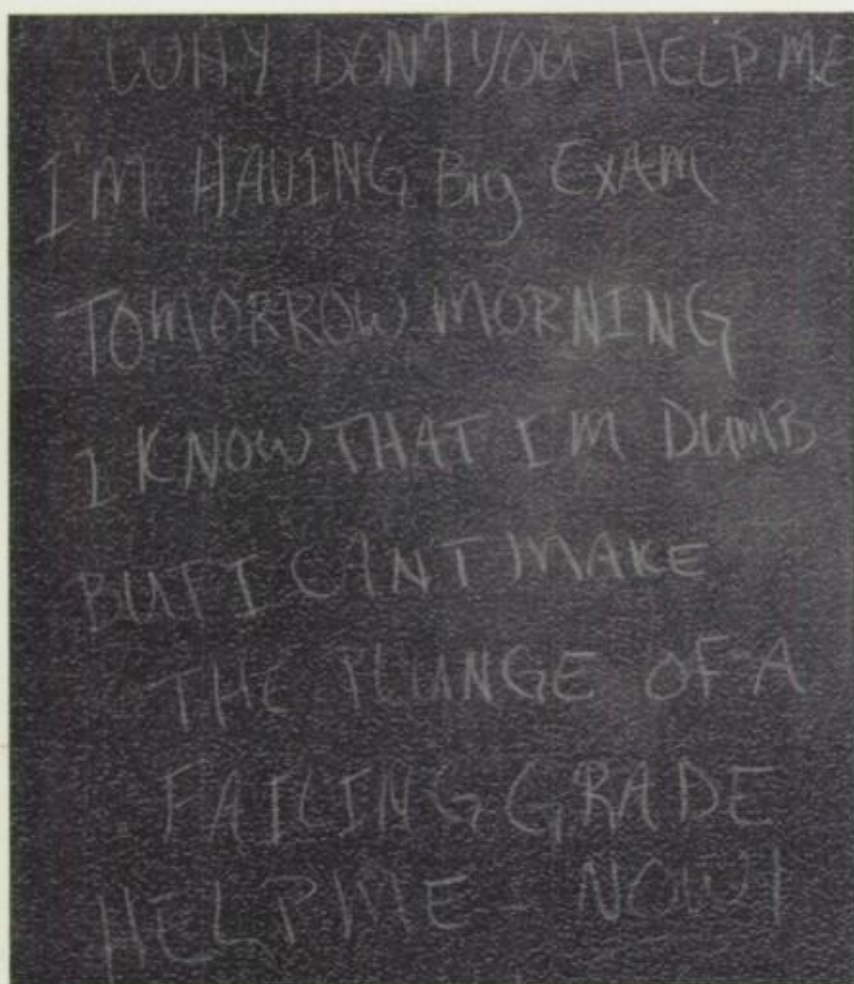 WHY DON'T YOU HELP ME
I'M HAVING Big EXAM
TOMORROW MORNING
I KNOW THAT I'M DUMB
BUT I CAN'T MAKE
THE PLUNGE OF A
FAILING GRADE
HELP ME - NOW!